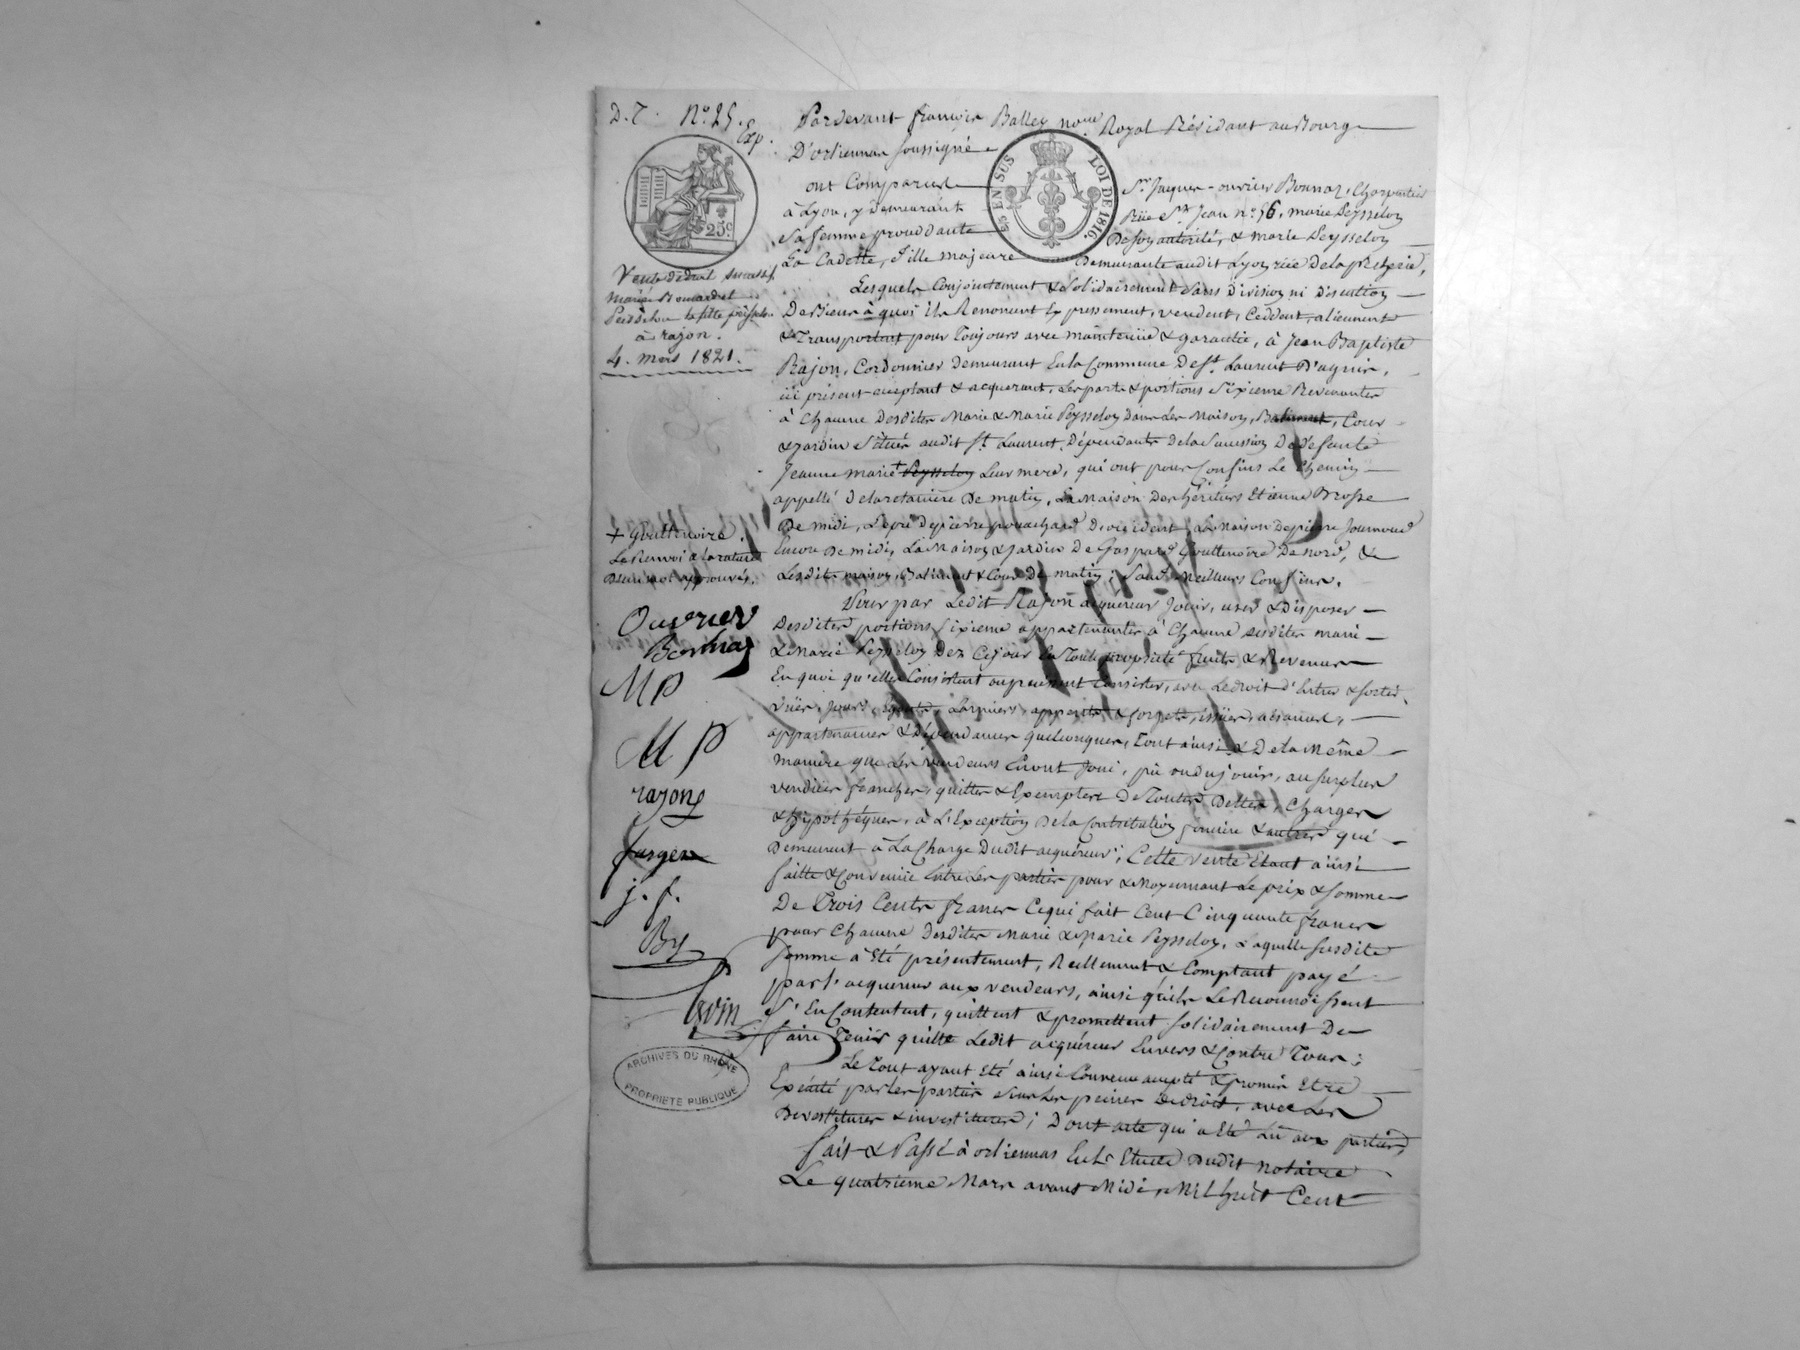 D. T. N.° 25. Exp.
Pardevant françois Balley no.re Royal Résidant au Bourg
D'orliennas soussigné
ont Comparu S.r Jaques-ouvrier Bonnaz, Charpentier
à Lyon, y demeurant Rüe S.t Jean n.° 56, marie Peysselon
sa femme procédante De son autorité, & marie Peysselon
La Cadette, fille majeure Demeurante audit Lyon rüe De la pêcherie,
Lesquels Conjointement & solidairement sans Division ni Discution
De Bieur à quoi ils Renoncent Expressement, vendent, Ceddent, alienent
& Transportent pour Toujours avec maintenüe & garantie, à Jean Baptiste
Rajon, Cordonnier Demeurant En la Commune De S.t Laurent D'agnir,
ici présent acceptant & acquerant, Les parts & portions Sixieme Revenantes
à Chacune Desdites Marie & Marie Peysselon Dans Les Maison, Batiment, Cour
& Jardin Situés audit S.t Laurent, Dépendants De la Succession De Defeunte
Jeanne Marie + Peysselon Leur mere, qui ont pour Confins Le Chemin
appellé De La De matin, La Maison Des héritiers Etienne Brosse
De midi, Le pré De pierre pouachard D'occident, La Maison De pierre Journoud
Encore De midi, La Maison & Jardin De Gaspard Gouttenoire De nord, &
Lesdits maison, Batiment & Cour De matin; Sauf Meilleurs Confins.
Pour par Ledit Rajon acquereur Jouir, user & Disposer
Desdites portions Sixieme appartenantes à Chacune desdites marie
& Marie Peysselon Dez Cejour En Toute propriété fruits & Revenus
En quoi qu'elles Consistent ou puissent Consister, avec Le droit d'Entrer & sortir,
Vües, jours, Egouts, Larmiers, appentis & forgets, issües, aisances,
appartenances & Dépendances quelconques, Tout ainsi & De la Même
maniere que Les Vendeurs En ont Joui, pû ou dû jouir, au surplus
vendües franches, quittes & Exemptes De Toutes Dettes, Charges
& hypothéques, à L'Exception De la Contribution fonciere & autres qui
Demeurent à La Charge Dudit acquéreur; Cette vente Etant ainsi
faitte & Convenüe Entre Les parties pour & Moyennant Le prix & somme
De Trois Cents francs Ce qui fait Cent Cinquante francs
pour Chacune Desdites Marie & Marie Peysselon, Laquelle susdite
somme à Eté présentement, Réellement & Comptant payé
par l'acquereur aux vendeurs, ainsi qu'ils Le Reconnoissent
s'En Contentent, quittent & promettent solidairement De
faire Tenir quitte Ledit acquéreur Envers & Contre Tous;
Le Tout ayant Eté ainsi Convenu accepté & promis Etre
Exécuté par Les parties sous Les peines De droit, avec Les
Devestitures & investitures; Dont acte qui a Eté Lû aux parties,
fait & Passé à orliennas En L'Etude Dudit notaire
Le quatrieme Mars avant Midi, Mil huit Cent
25.c
45 EN SUS LOI DE 1816.
Vente de droit successif
Marie Bonardet
Peisselon la fille
à rajon.
4. mars 1821.
+ Gouttenoire.
Le Renvoi & la rature
D'un mot approuvés.
Ouvrier
Bonnaz
M P
M P
rajong
fargere
j. f.
By
ARCHIVES DU RHÔNE
PROPRIÉTÉ PUBLIQUE